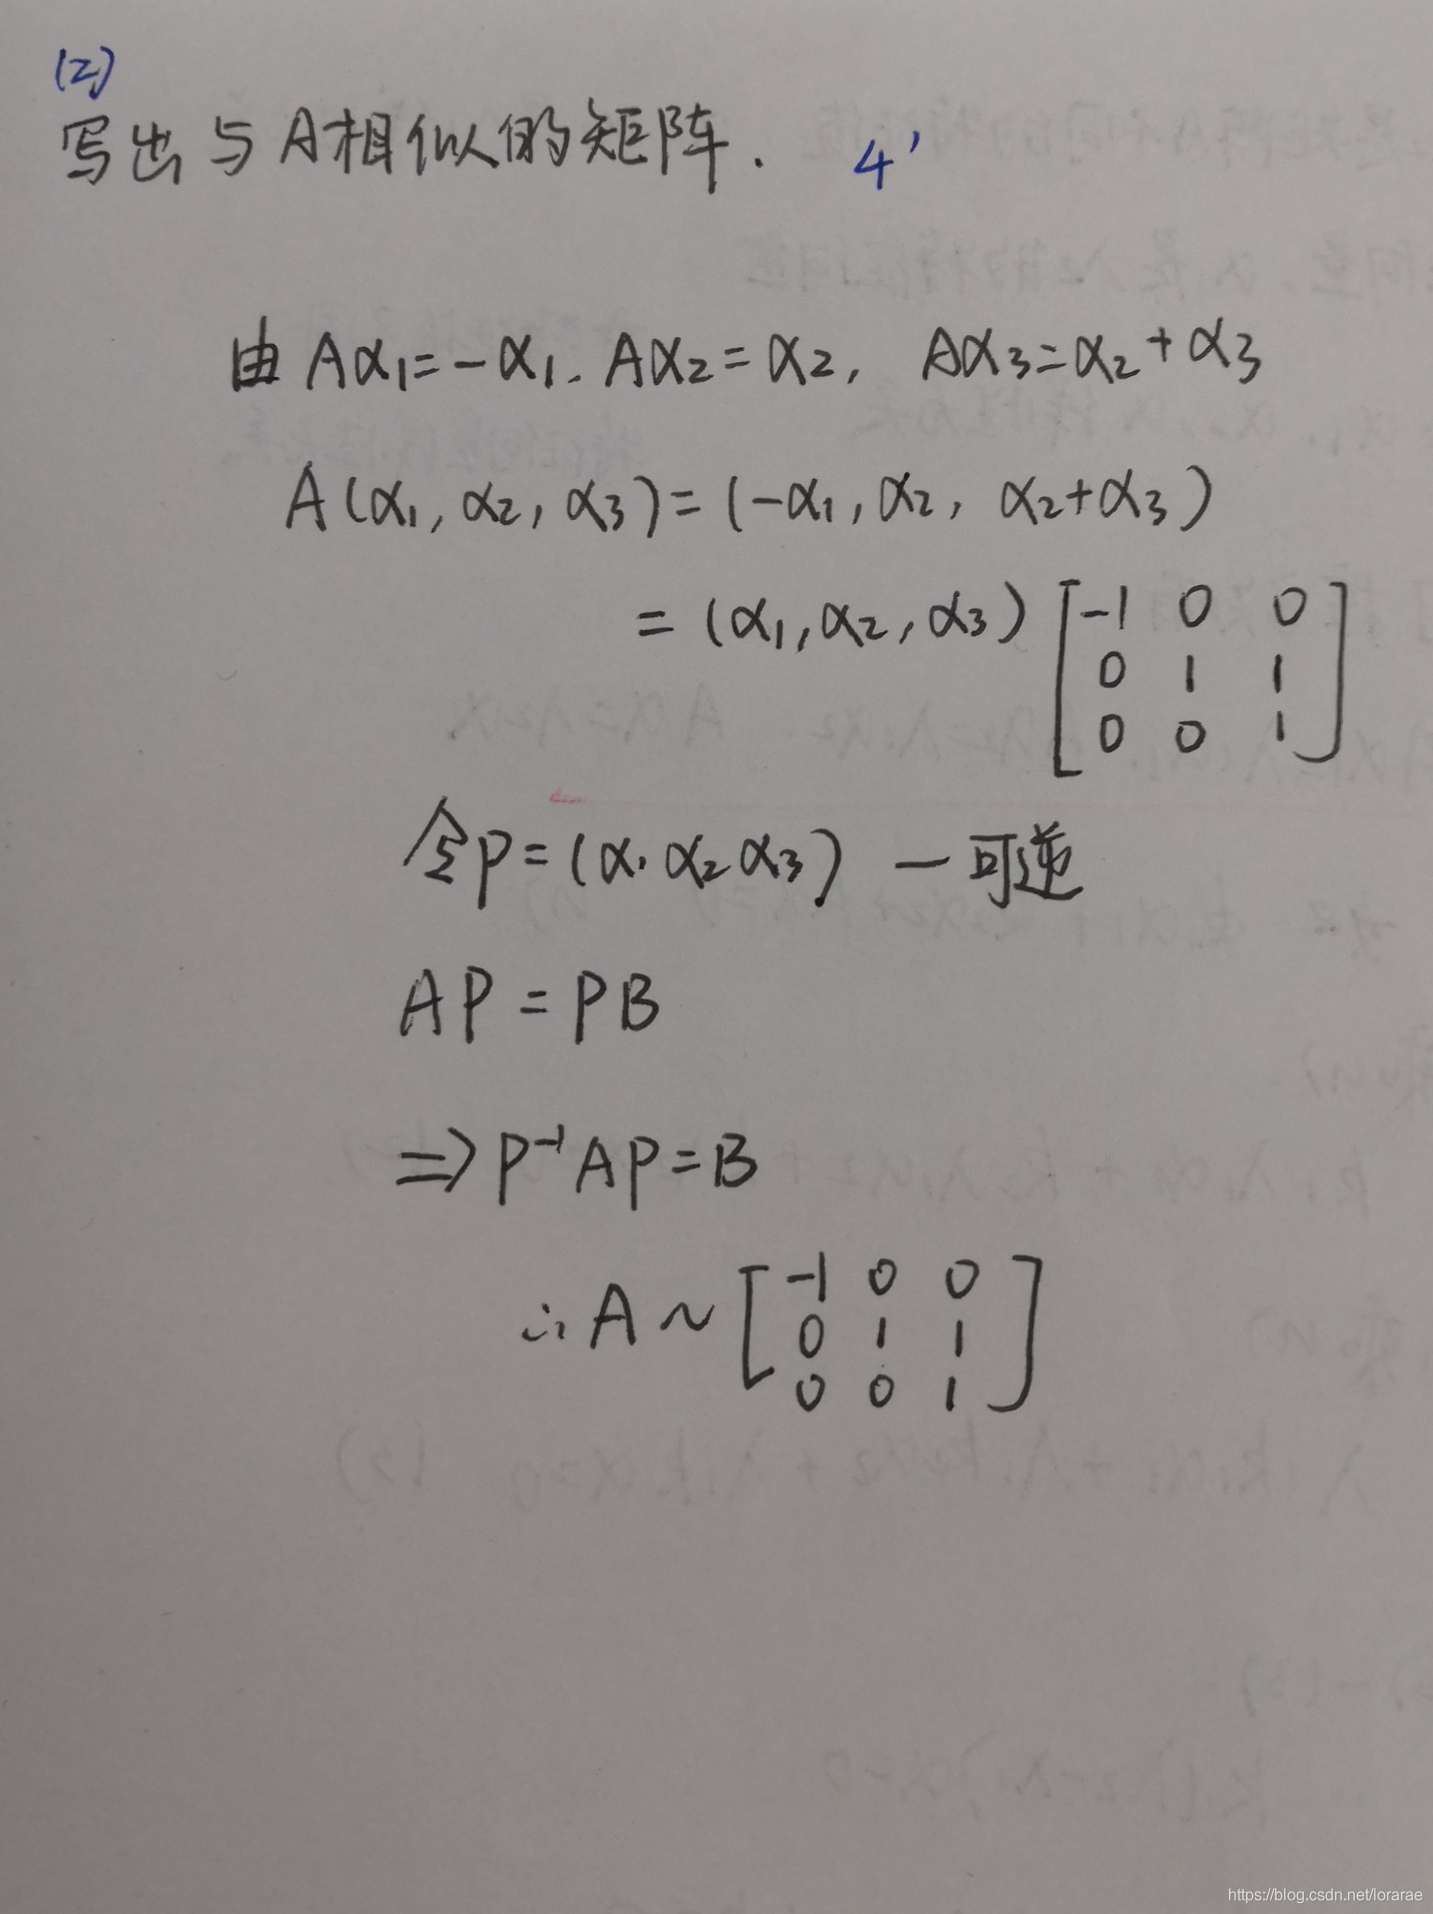 (2)
写出与A相似的矩阵. 4'
由 Aα₁=-α₁. Aα₂=α₂, Aα₃=α₂+α₃
A(α₁,α₂,α₃)=(-α₁,α₂,α₂+α₃)
=(α₁,α₂,α₃)[-1 0 0
0 1 1
0 0 1]
令P=(α₁ α₂ α₃) — 可逆
AP=PB
⇒P⁻¹AP=B
∴A~[-1 0 0
0 1 1
0 0 1]
https://blog.csdn.net/lorarae